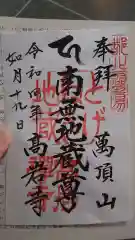 奉拝 萬頂山
南無地蔵尊
令和四年 高岩寺
如月十九日
とげぬき
地蔵尊